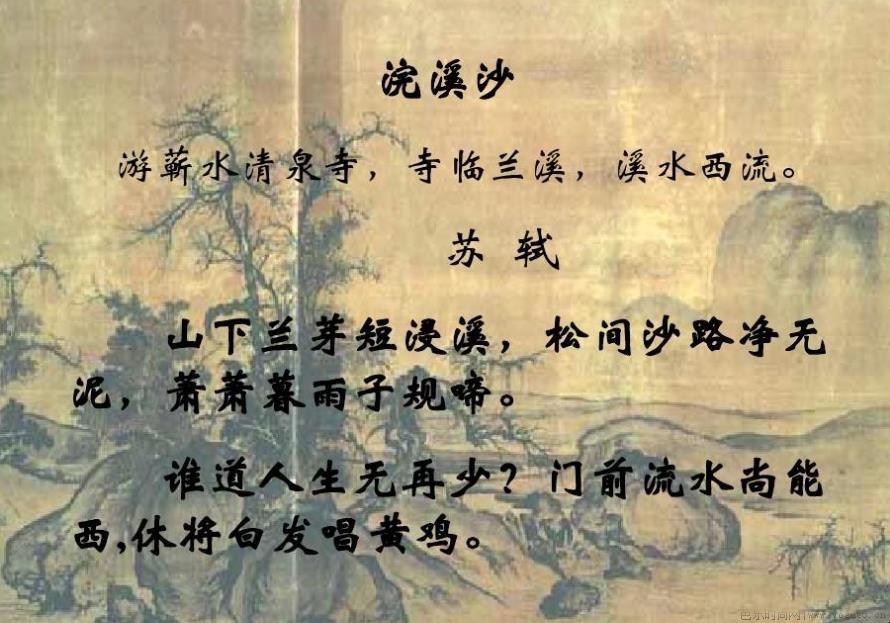 浣溪沙
游蕲水清泉寺，寺临兰溪，溪水西流。
苏 轼
山下兰芽短浸溪，松间沙路净无
泥，萧萧暮雨子规啼。
谁道人生无再少？门前流水尚能
西,休将白发唱黄鸡。